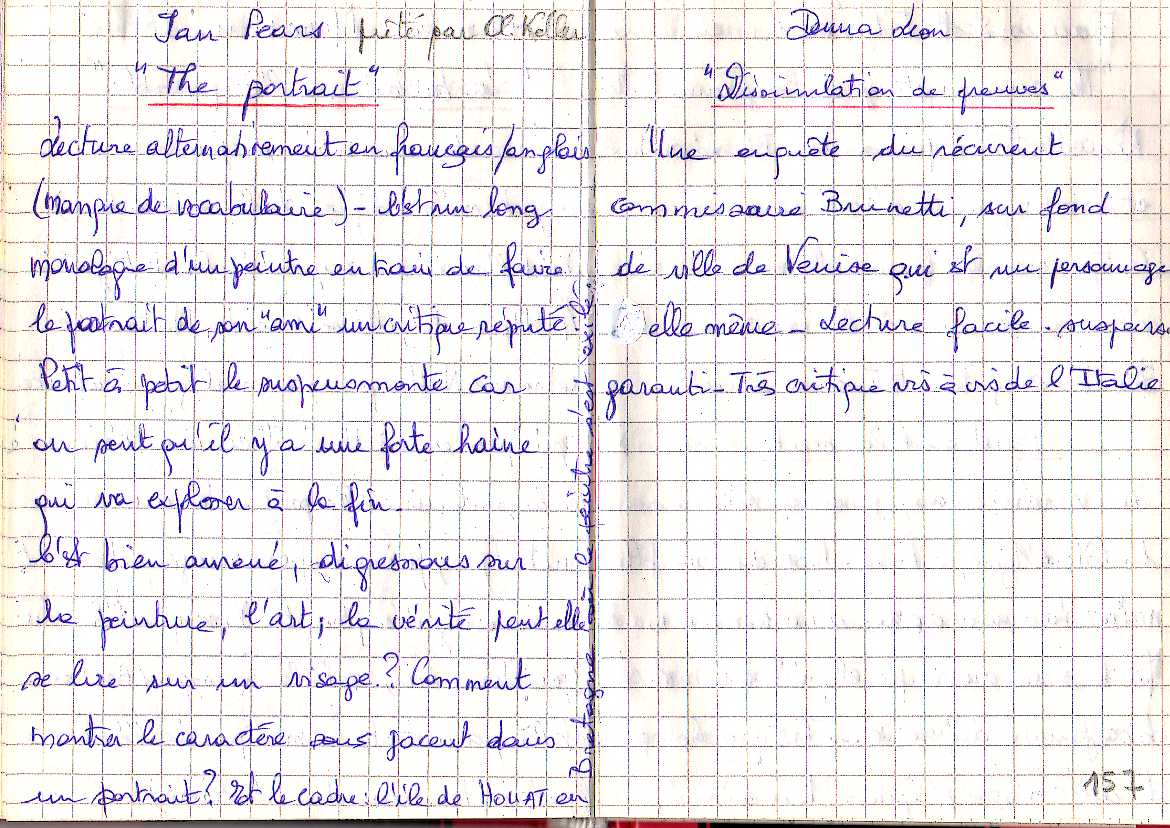 Ian Pears prêté par Cl. Keller
"The portrait"
Lecture alternativement en français/anglais
(manque de vocabulaire) - C'est un long
monologue d'un peintre en train de faire
le portrait de son "ami" un critique réputé.
Petit à petit le suspens monte car
on sent qu'il y a une forte haine
qui va exploser à la fin.
C'est bien amené, digressions sur
la peinture, l'art, la vérité peut elle
se lire sur un visage? Comment
montrer le caractère sous jacent dans
un portrait? Et le cadre: l'île de HOUAT en
Bretagne où le peintre s'est exilé.
Donna Leon
"Dissimulation de preuves"
Une enquête du récurent
commissaire Brunetti, sur fond
de ville de Venise qui est un personnage
elle même - Lecture facile. suspens
garanti - Très critique vis à vis de l'Italie
157